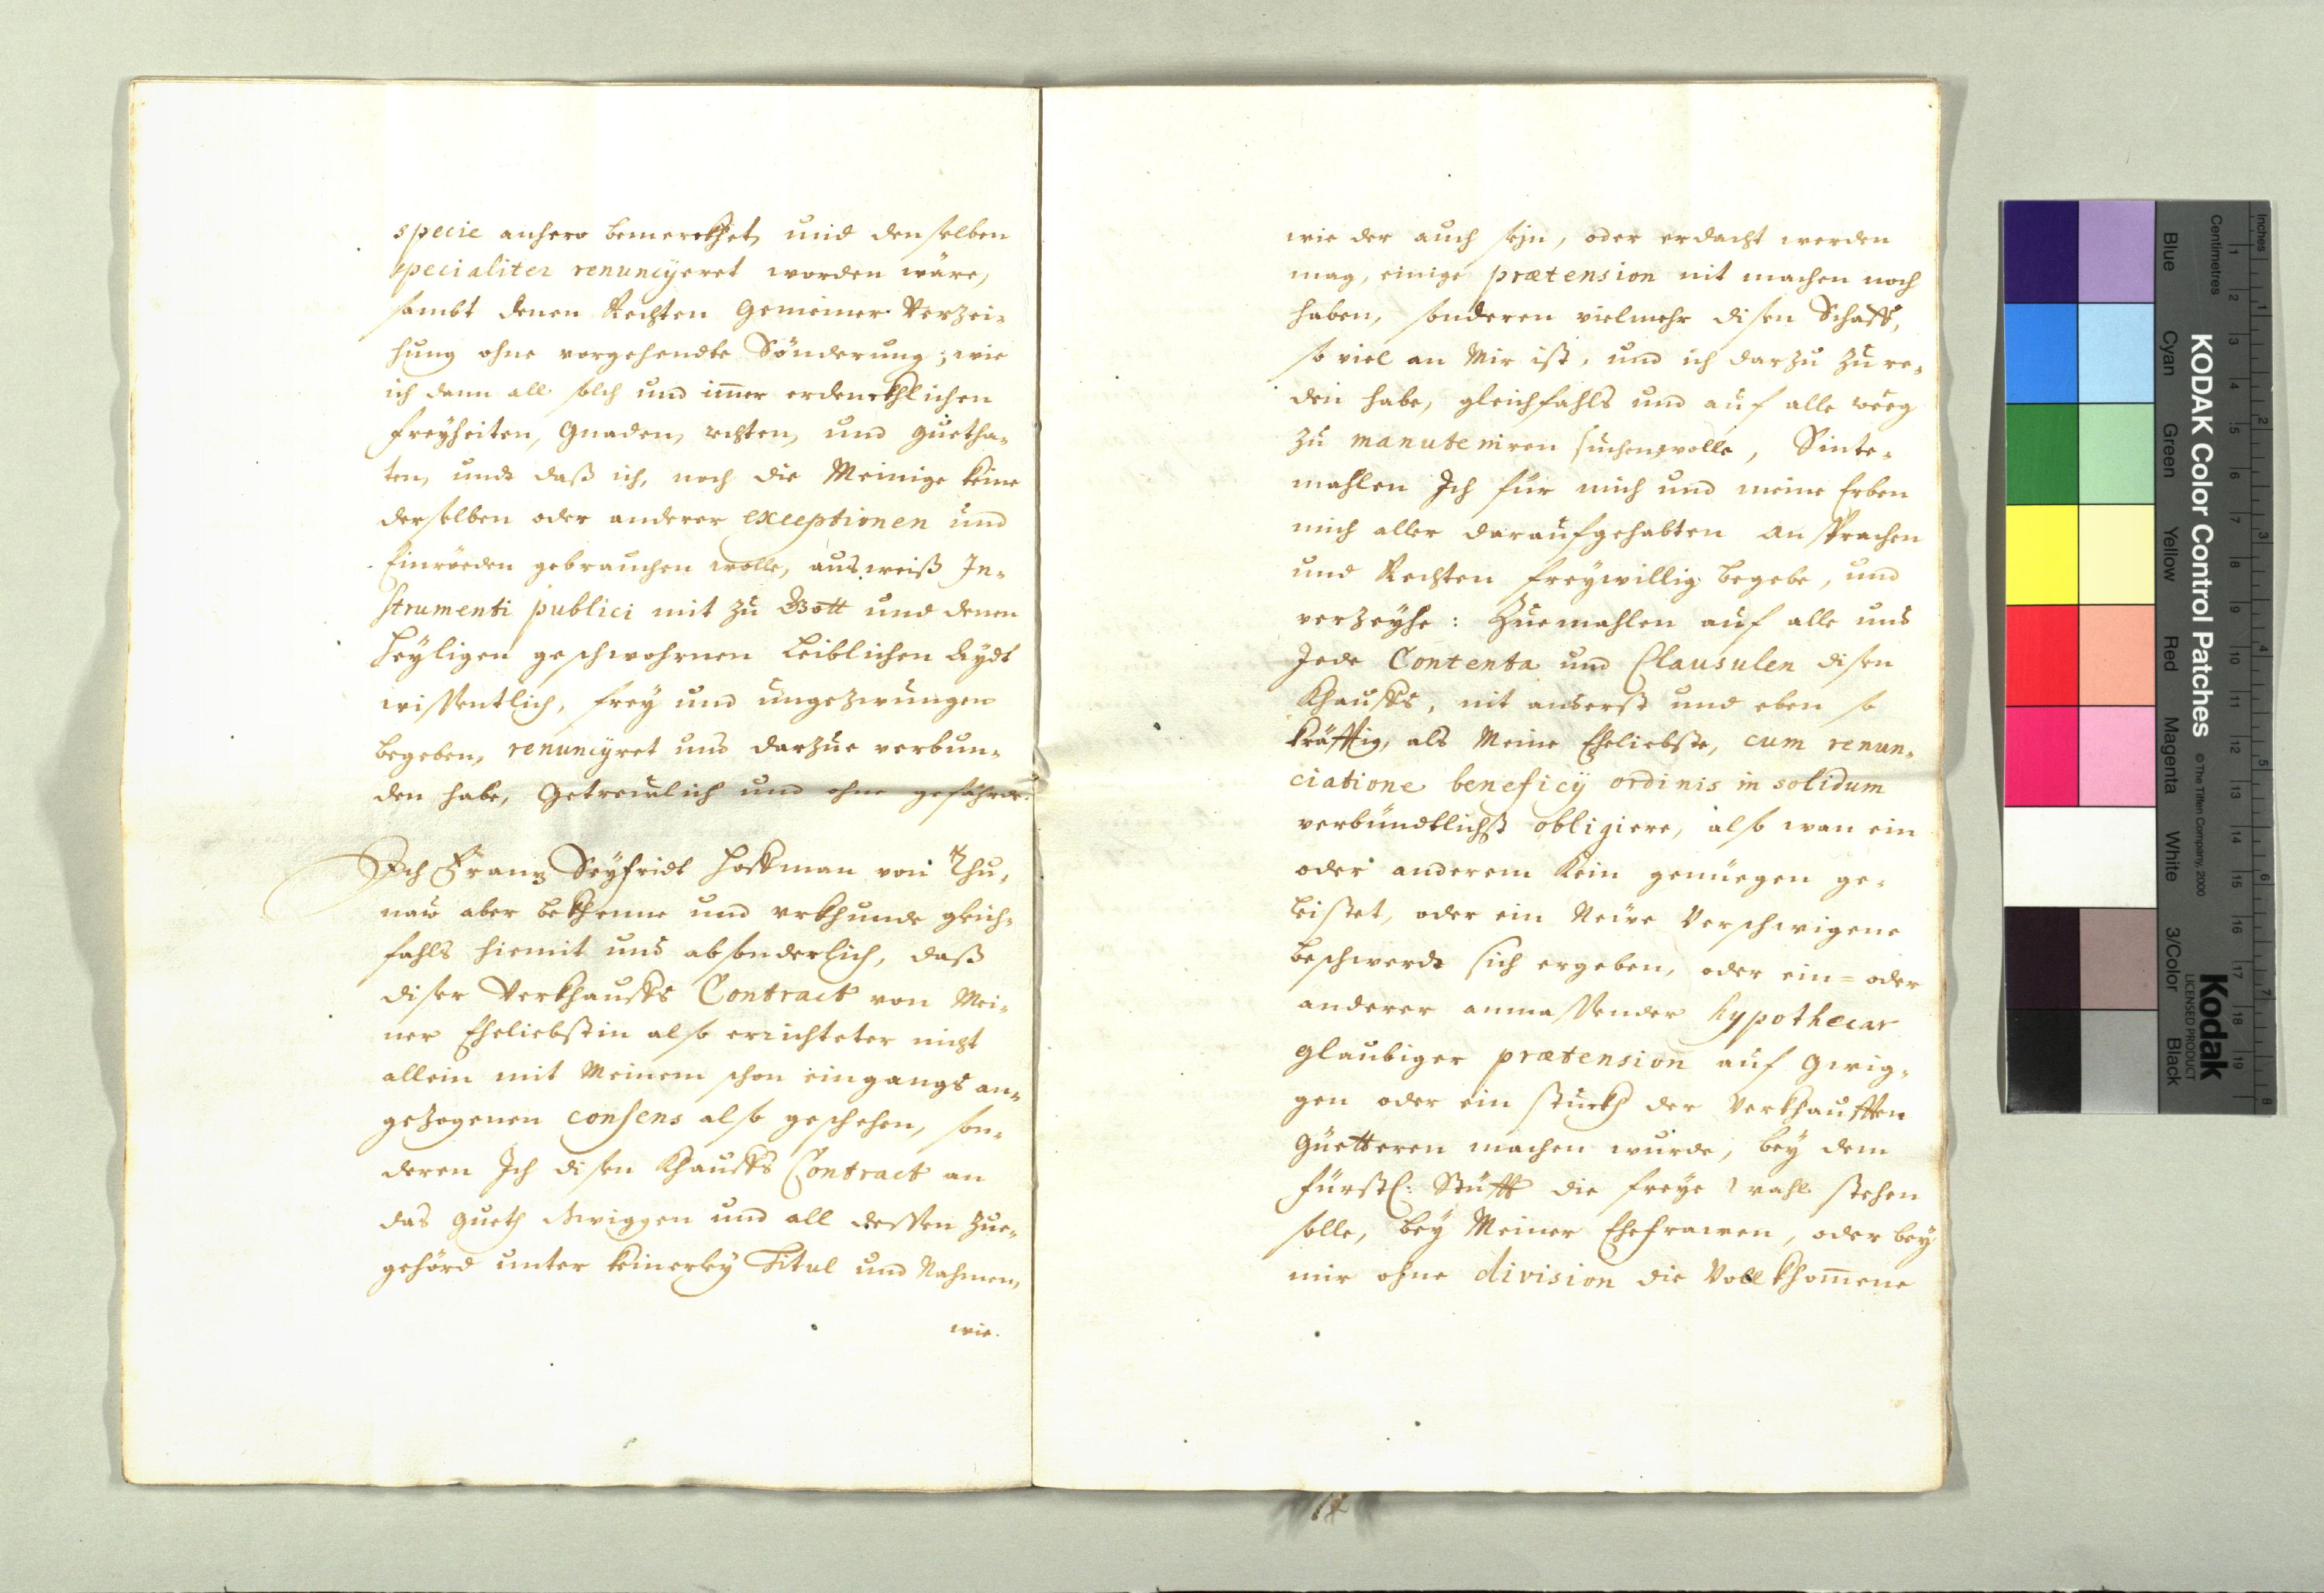 specie anhero bemerckhet, und denselben
specialiter renuncyeret worden wäre,
sambt denen Rechten Gemeiner Verzei=
hung ohne vorgehendte Sönderung; wie
ich dann all solch und im̄er erdenckhlichen
freyheiten, Gnaden, rechten, und guetha=
ten, undt daß ich, noch die Meinige keine
derselben oder anderer exceptionen und
Einröeden gebrauchen wolle, ausweiß In=
strumenti publici mit zu Gott und denen
Heyligen geschwohrnen Leiblichen Aydt
wissentlich, frey und ungezwungen
begeben, renuncyret und darzue verbun=
den habe, Getreulich und ohne gefährde.
Ich Franz Seyfridt Hoffman von Thu=
naw aber bekhenne und urkhunde gleich=
fahls hiemit und absonderlich, daß
diser Verkhauffs Contract von Mei=
ner Eheliebstin also errichteter nicht
allein mit Meinem schon eingangs an=
gezogenen consens also geschehen, son=
deren Ich disen Khauffs Contract an
das Gueth Gwiggen und all dessen Zue=
gehörd unter keinerley Titul und Nahmen,
wie.
wie der auch sejn, oder erdacht werden
mag, einige prætension nit machen noch
haben, sonderen vielmehr disen Schaff,
so viel an Mir ist, und ich darzu zu re=
den habe, gleichfahls und auf alle weeg
zu manuteniren suchen wolle, Sinte=
mahlen Ich für mich und meine Erben
mich aller daraufgehabten Ansprachen
und Rechten freywillig begebe, und
verzeyhe: Zuemahlen auf alle und
Jede Contenta und Clausulen disen
Khauffs, nit anderst und eben so
kräfftig, als Meine Eheliebste, cum renun=
ciatione beneficij ordinis in solidum
verbündtlichst obligiere, also wan ein
oder anderem kein genüegen ge=
leistet, oder ein Neüe Verschwigene
beschwerdt sich ergeben, oder ein= oder
anderer anmassender hypothecar
glaubiger prætension auf Gwig=
gen oder ein stuckh der Verkhaufften
Güetteren machen wurde, bey dem
fürstl: Stüfft die freye wahl stehen
solle, bey Meiner Ehefrawen, oder bey
mir ohne division die Vollkhom̄ene
KODAK Color Control Patches © The Tiffen Company, 2000
Kodak
LICENSED PRODUCT
Blue Cyan Green Yellow Red Magenta White 3/Color Black
Inches 1 2 3 4 5 6 7 8
Centimetres 1 2 3 4 5 6 7 8 9 10 11 12 13 14 15 16 17 18 19